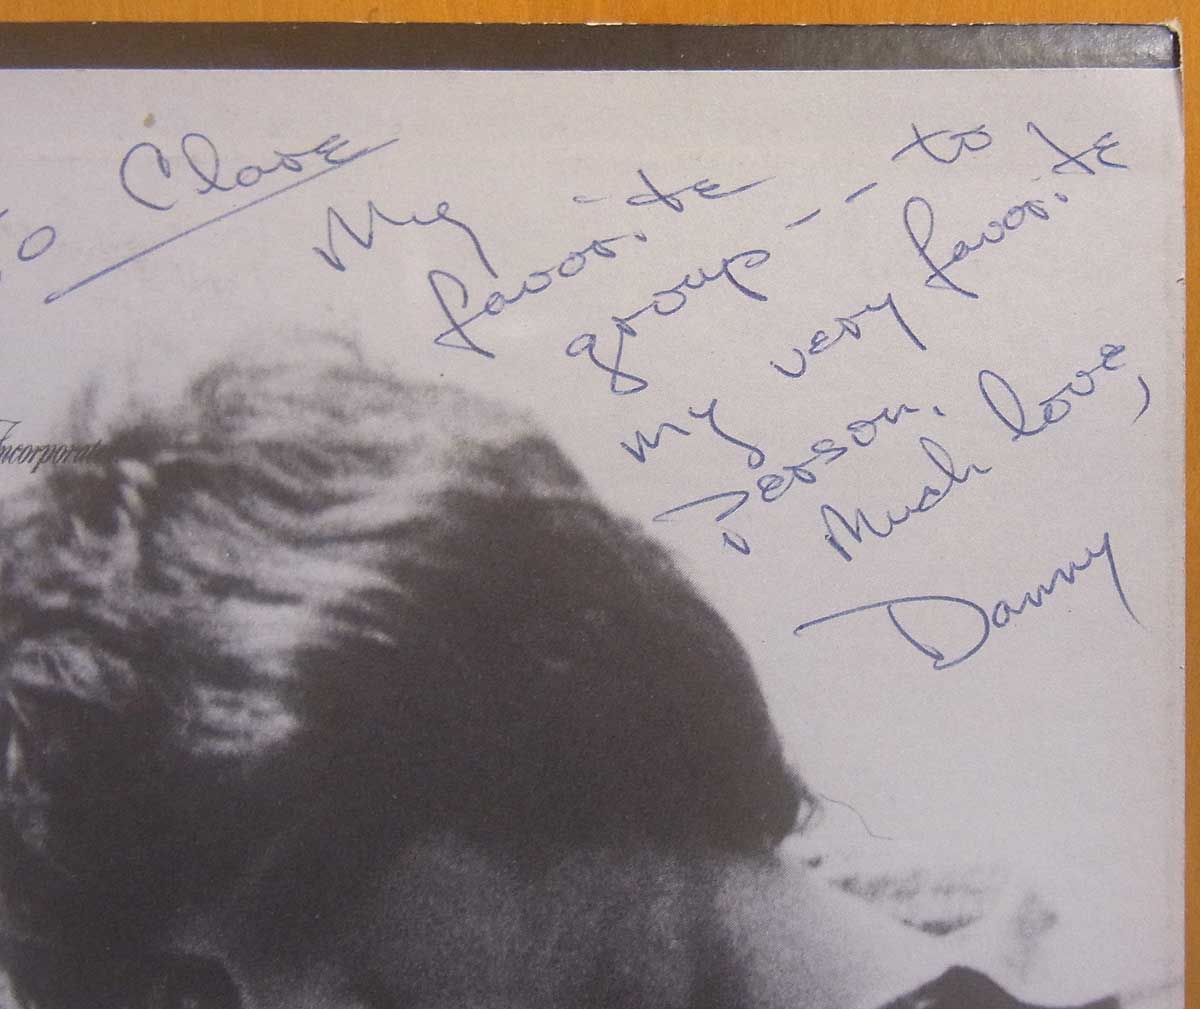 To Clare
My
favorite
group -- to
my very favorite
person.
Much love,
Danny
Incorporate